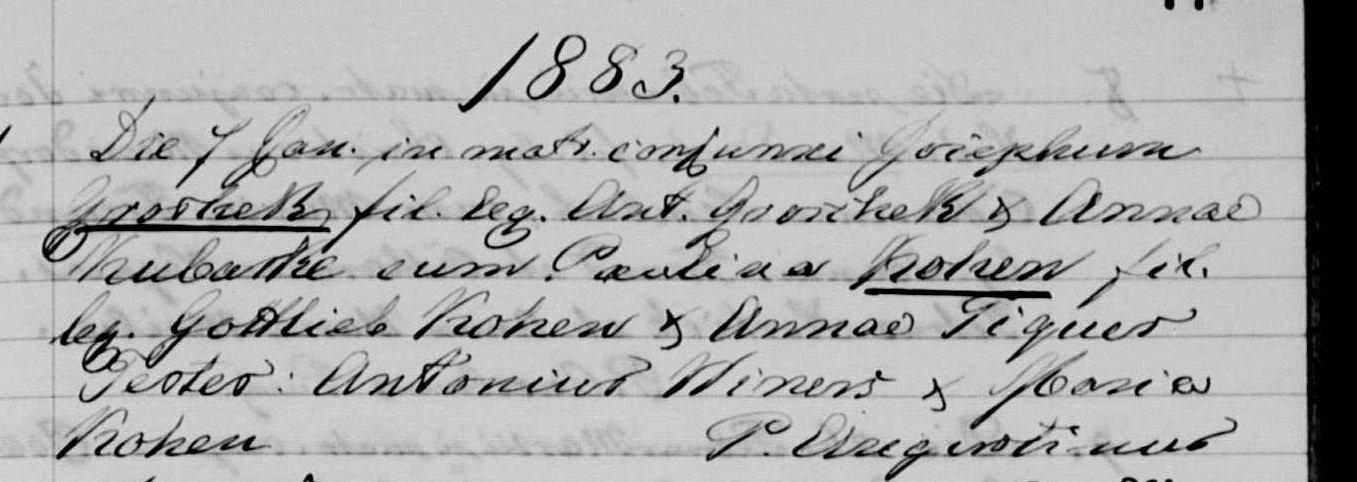 1883.
Die 7 Jan. in matr. conjunxi Josephum
Groshek, fil. leg. Ant. Groshek & Annae
Kubathe cum Paulina Kohen fil.
leg. Gottlieb Kohen & Annae Tiques
Testes: Antonius Winers & Maria
Kohen P. Augustinus